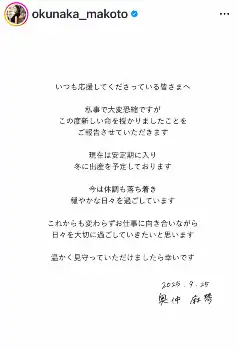 okunaka_makoto
いつも応援してくださっている皆さまへ
私事で大変恐縮ですが
この度新しい命を授かりましたことを
ご報告させていただきます
現在は安定期に入り
冬に出産を予定しております
今は体調も落ち着き
穏やかな日々を過ごしています
これからも変わらずお仕事に向き合いながら
日々を大切に過ごしていきたいと思います
温かく見守っていただけましたら幸いです
2025.9.25
奥仲 麻琴